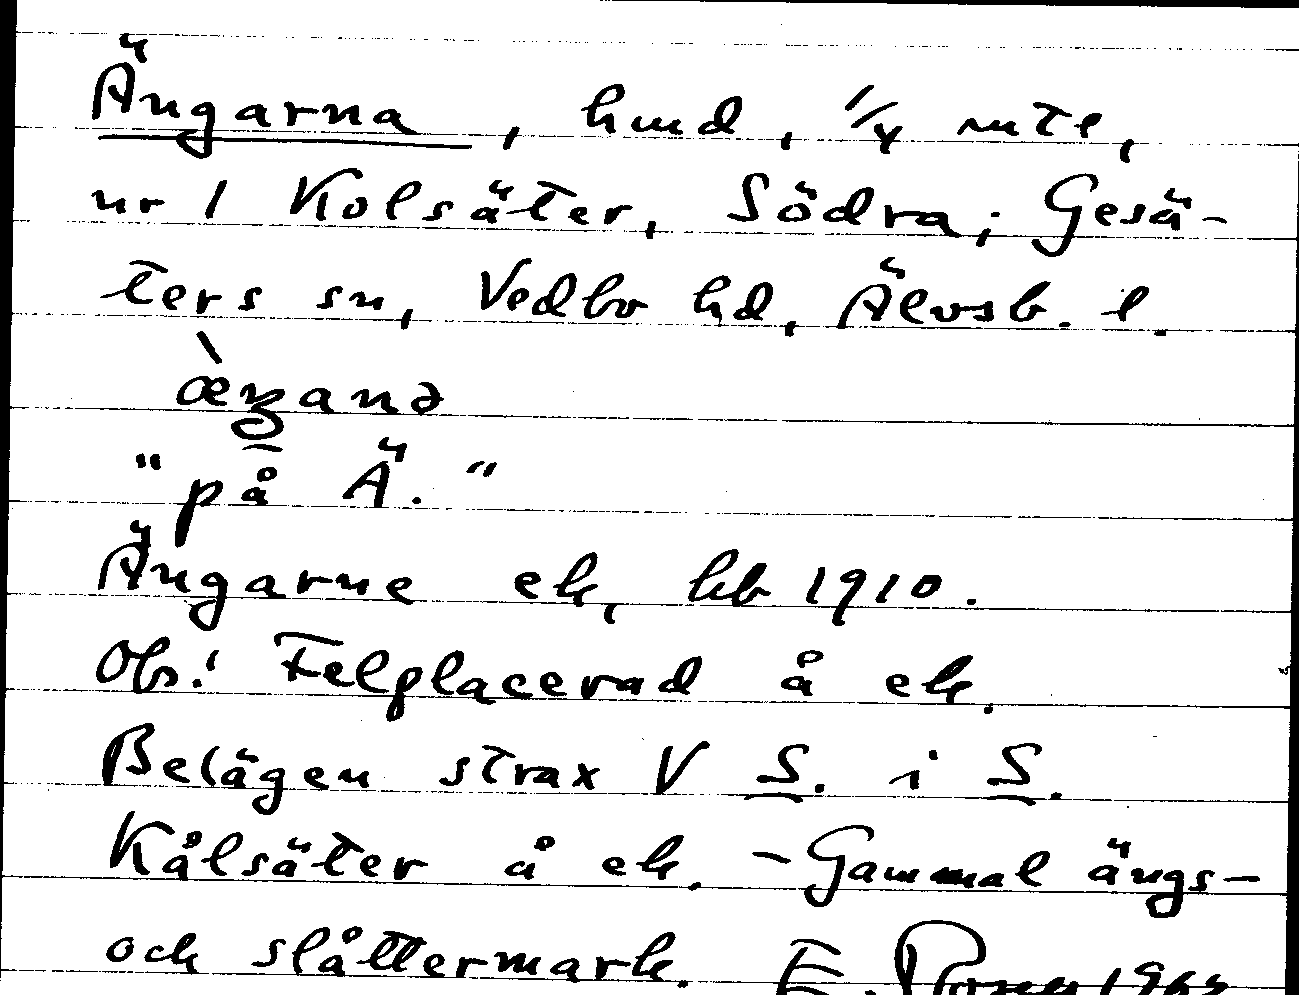 Ängarna, hmd, 1/4 mtl,
nr 1 Kolsäter, Södra; Gesä-
ters sn, Vedbo hd, Älvsb. l.
æ̀ŋana
"på Ä."
Ängarne ek, hb 1910.
Obs! Felplacerad å ek.
Belägen strax V S. i S.
Kålsäter å ek. - Gammal ängs-
och slåttermark. E.